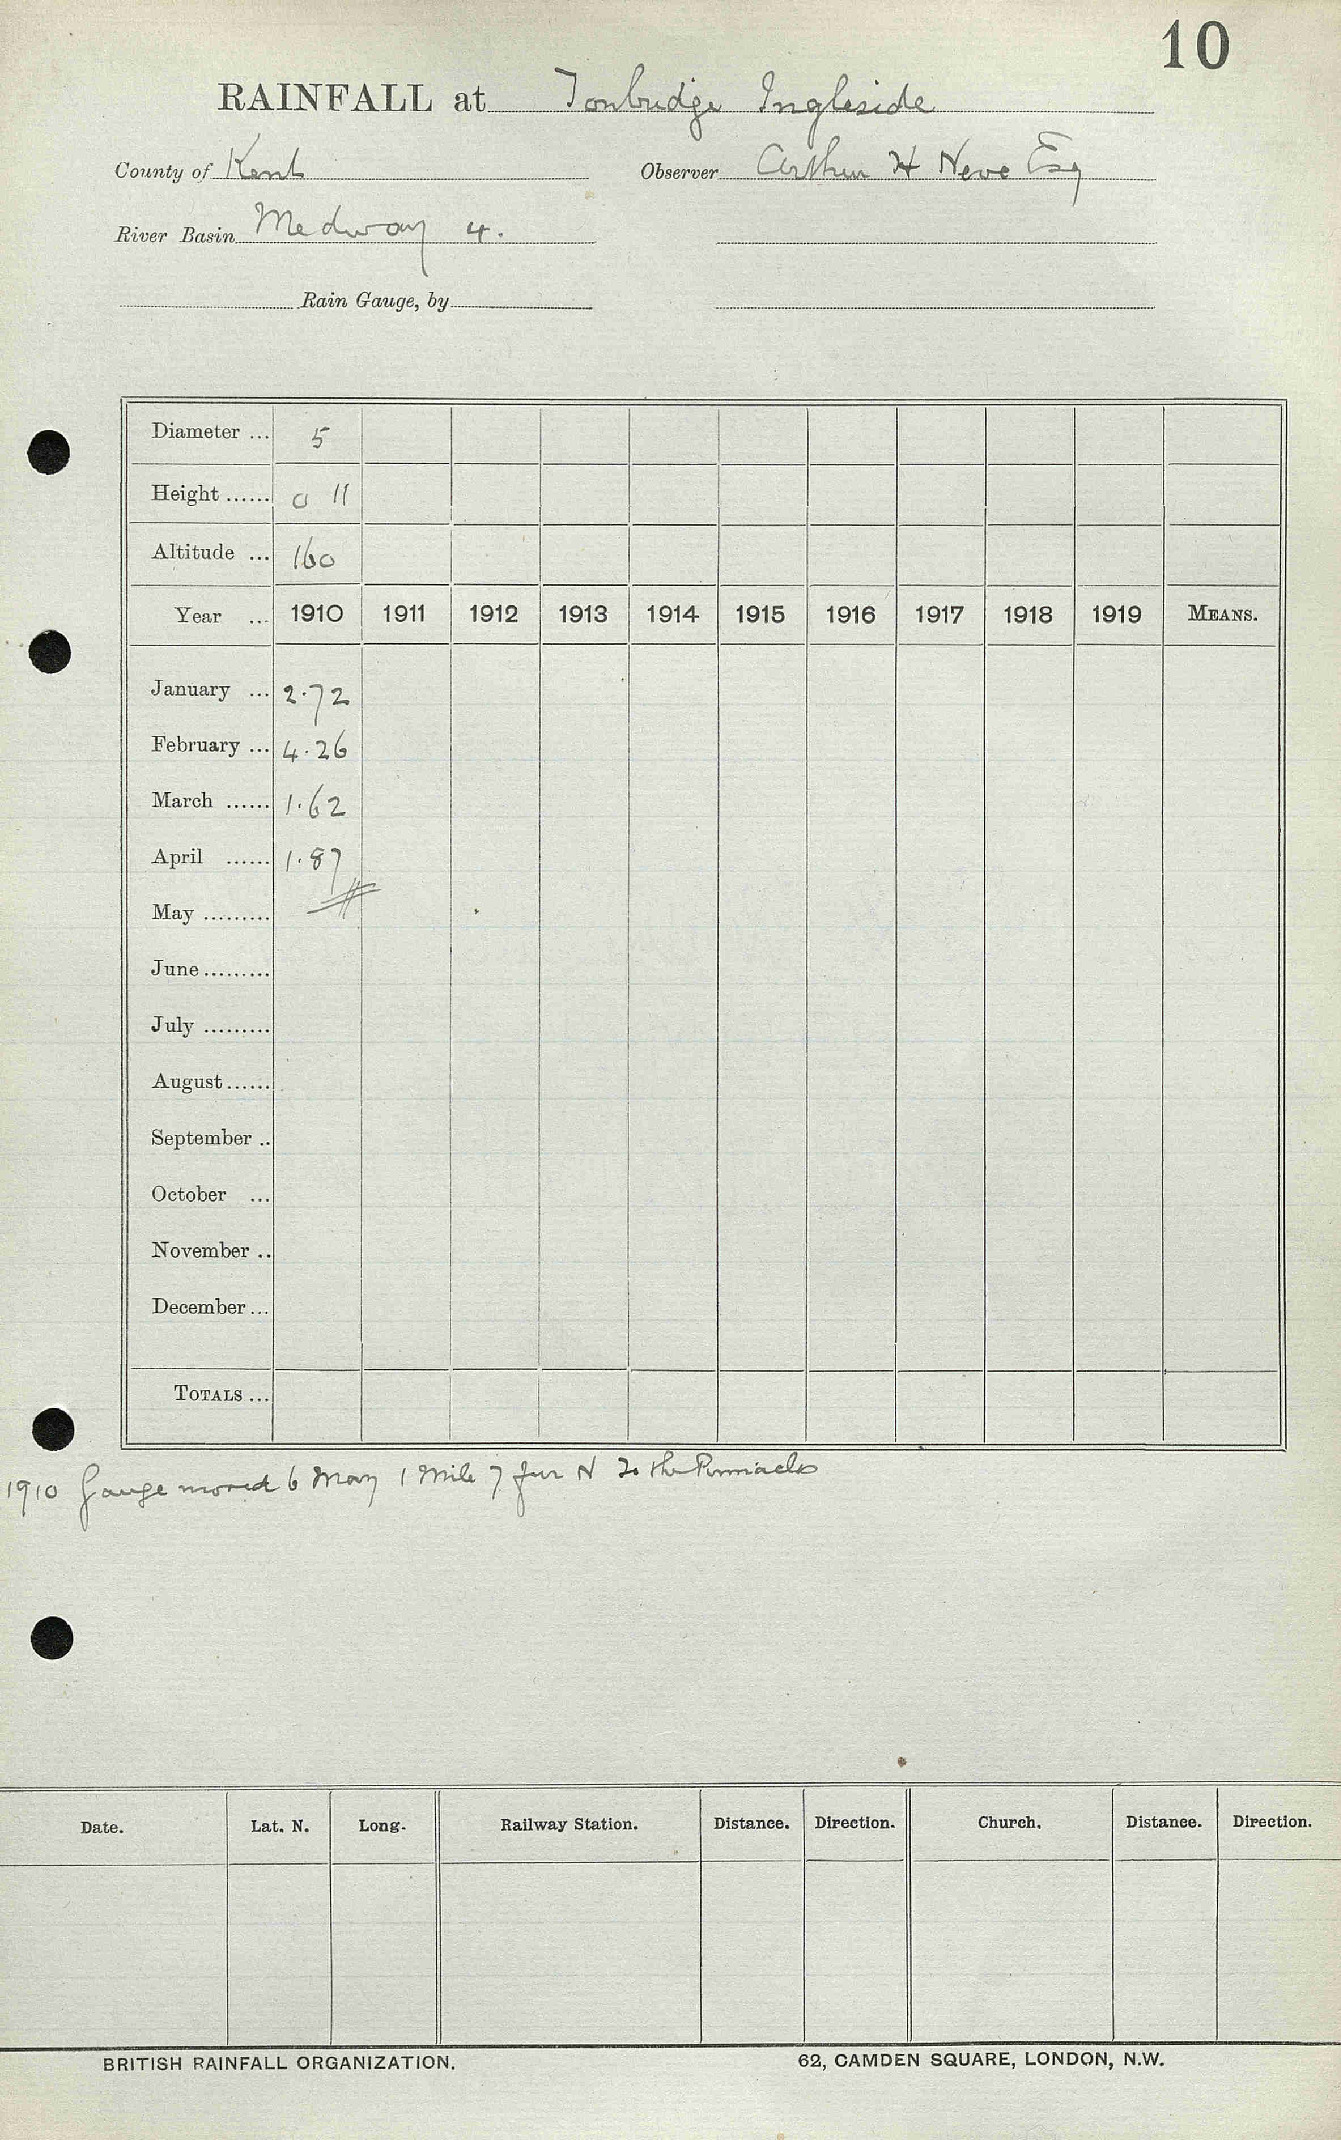 10
RAINFALL at Tonbridge Ingleside
County of Kent Observer Arthur H Neve Esq
River Basin Medway 4.
Rain Gauge, by
Diameter ... 5
Height ...... 0 11
Altitude ... 160
Year ... 1910 1911 1912 1913 1914 1915 1916 1917 1918 1919 MEANS.
January ... 2.72
February ... 4.26
March ...... 1.62
April ...... 1.87
May .........
June.........
July .........
August......
September ..
October ...
November ..
December...
TOTALS ...
1910 Gauge moved 6 May 1 Mile 7 fur N to the Pinnacles
Date. Lat. N. Long. Railway Station. Distance. Direction. Church. Distance. Direction.
BRITISH RAINFALL ORGANIZATION. 62, CAMDEN SQUARE, LONDON, N.W.